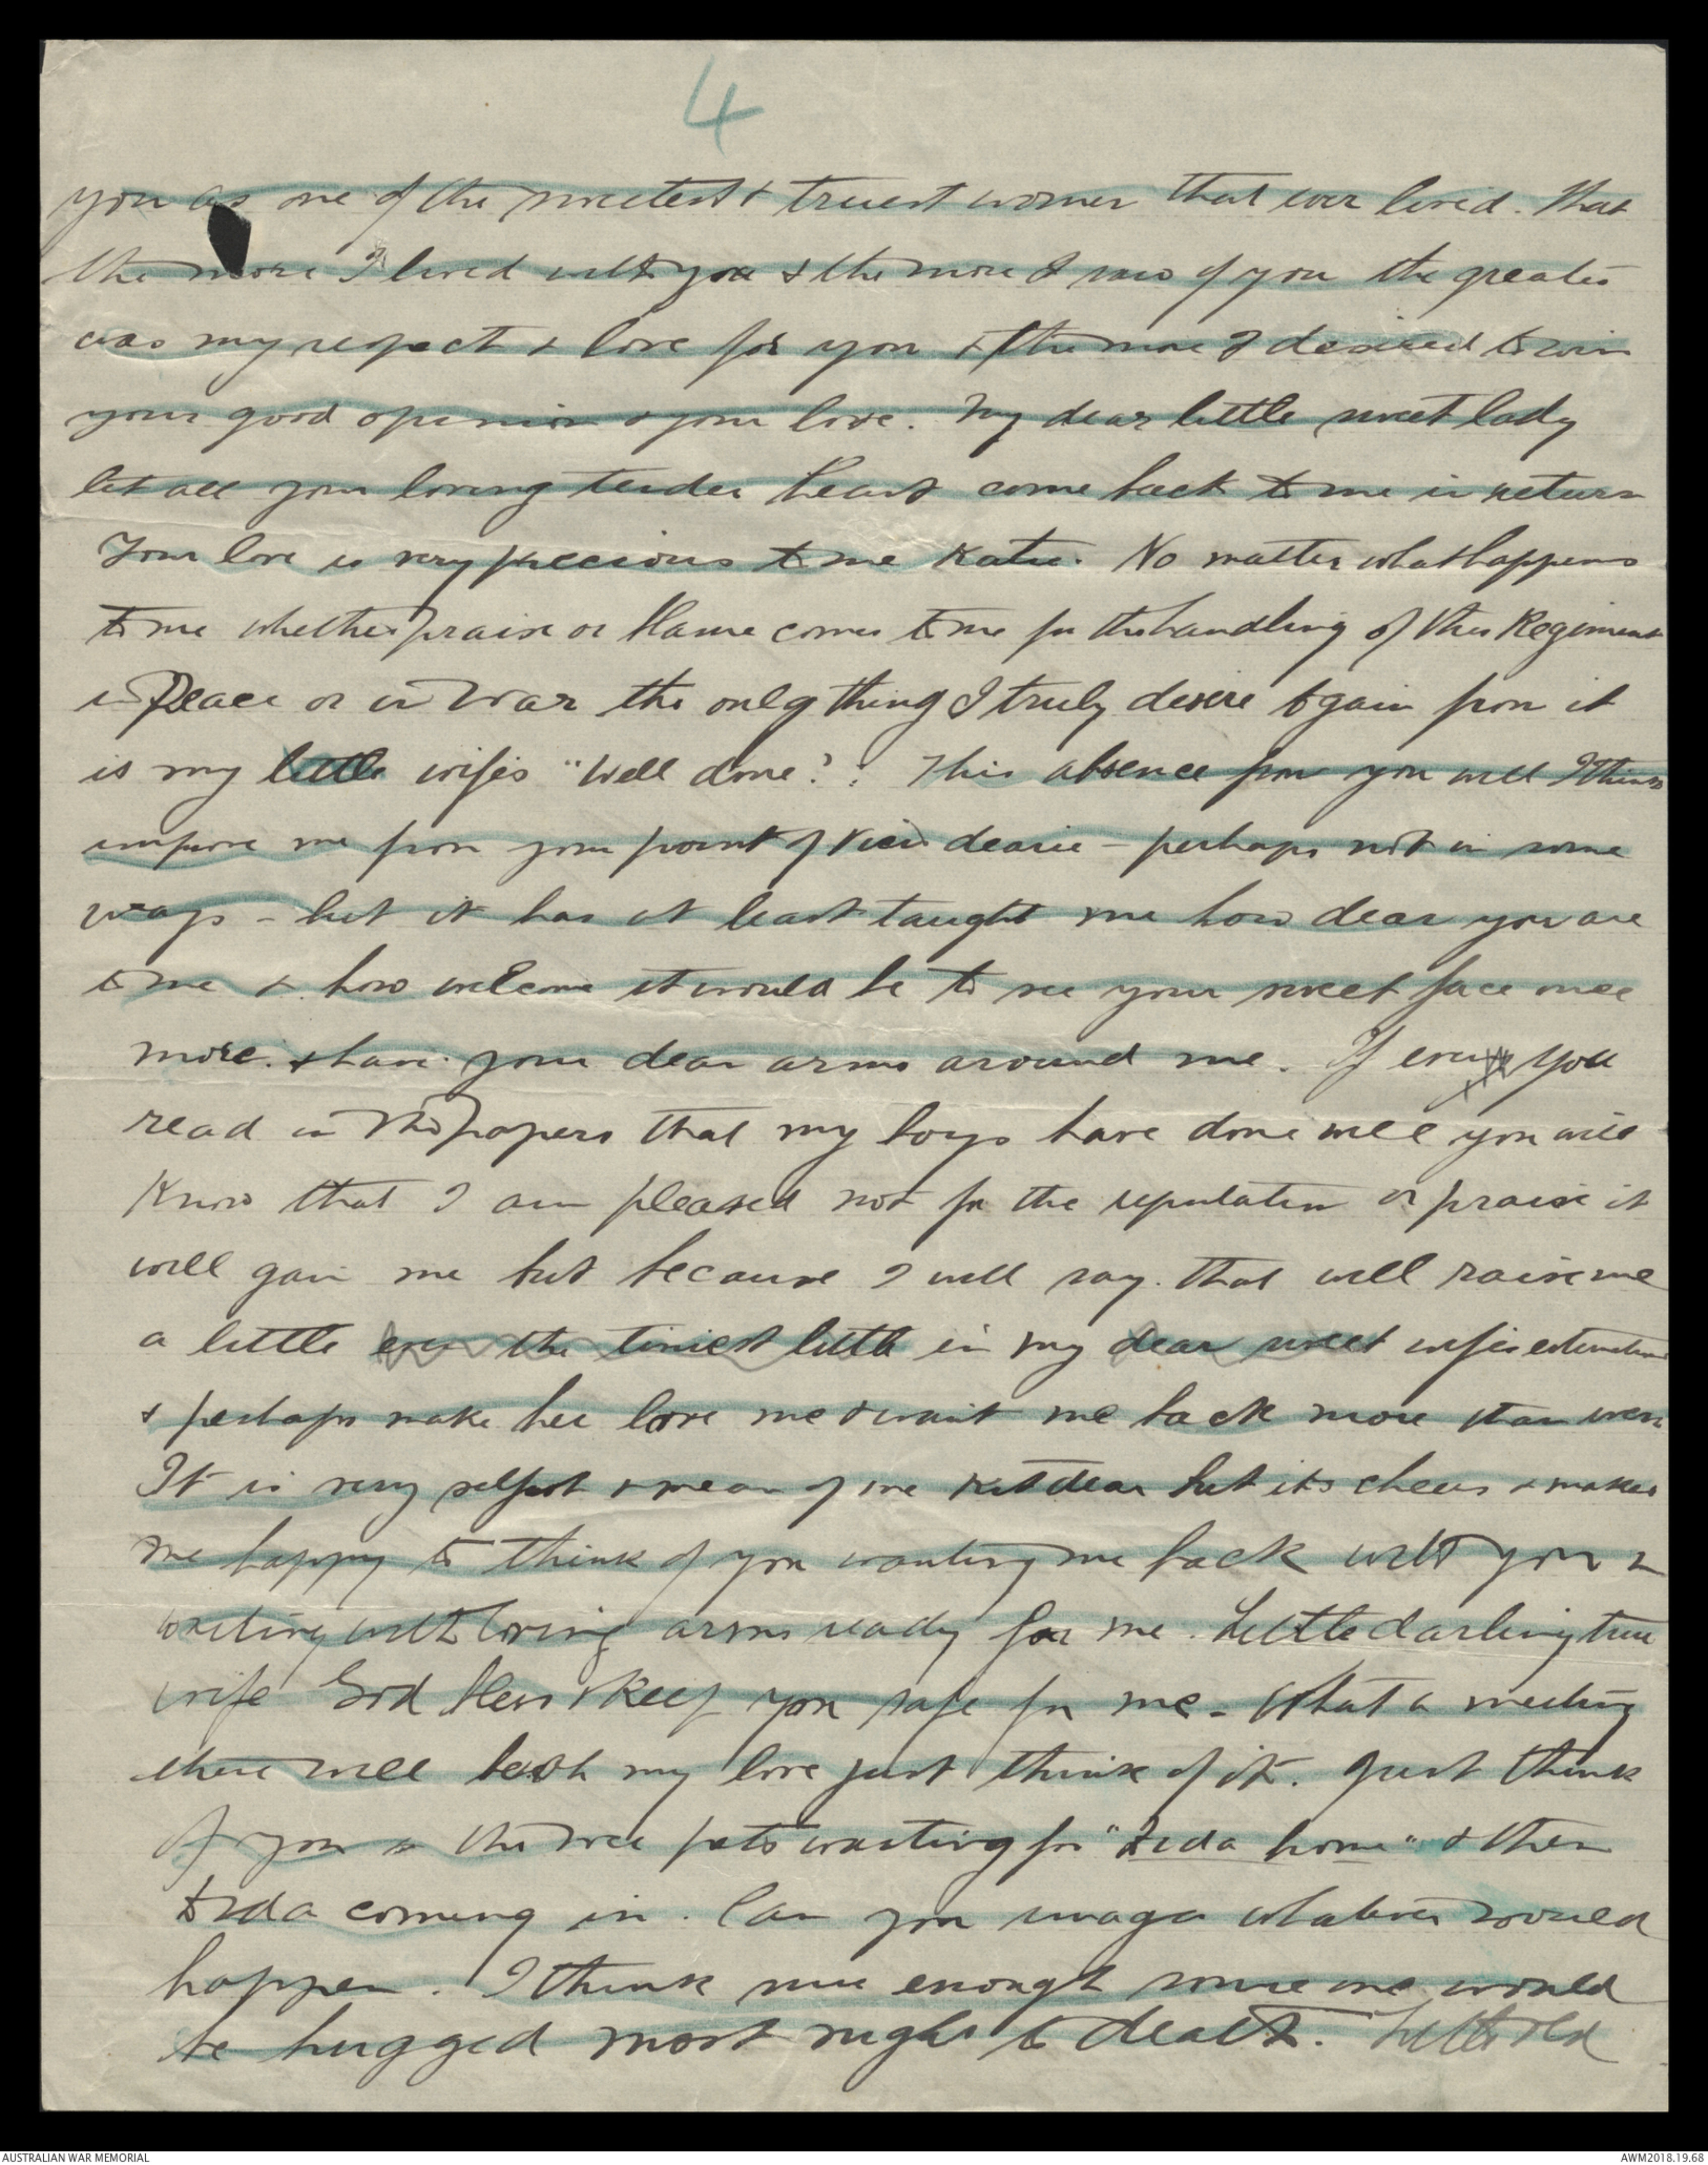 4
you as one of the sweetest & truest women that ever lived. That
the more I lived with you & the more I saw of you the greater
was my respect & love for you & the more I desired to win
your good opinion & your love. My dear little sweet lady
let all your loving tender heart come back to me in return
Your love is very precious to me Katie. No matter what happens
to me whether praise or blame comes to me for the handling of this Regiment
in Peace or in War the only thing I truly desire to gain from it
is my little wife's "Well done". This absence from you will I think
improve me from your point of view dearie - perhaps not in some
ways - but it has at least taught me how dear you are
to me & how welcome it would be to see your sweet face once
more & have your dear arms around me. If ever you
read in the papers that my boys have done well you will
know that I am pleased not for the reputation or praise it
will gain me but because I will say that will raise me
a little even the tiniest little in my dear sweet wifes estimation
& perhaps make her love me & want me back more than ever
It is very selfish & mean of me Kit dear but its cheers & makes
me happy to think of you wanting me back with you &
waiting with loving arms ready for me. Little darling true
wife God bless & keep you safe for me - What a meeting
there will be oh my love just think of it. Just think
of you & the wee pets waiting for "dada home" & then
dada coming in. Can you imagine whatever would
happen. I think sure enough some one would
be hugged most nigh to death. Little old